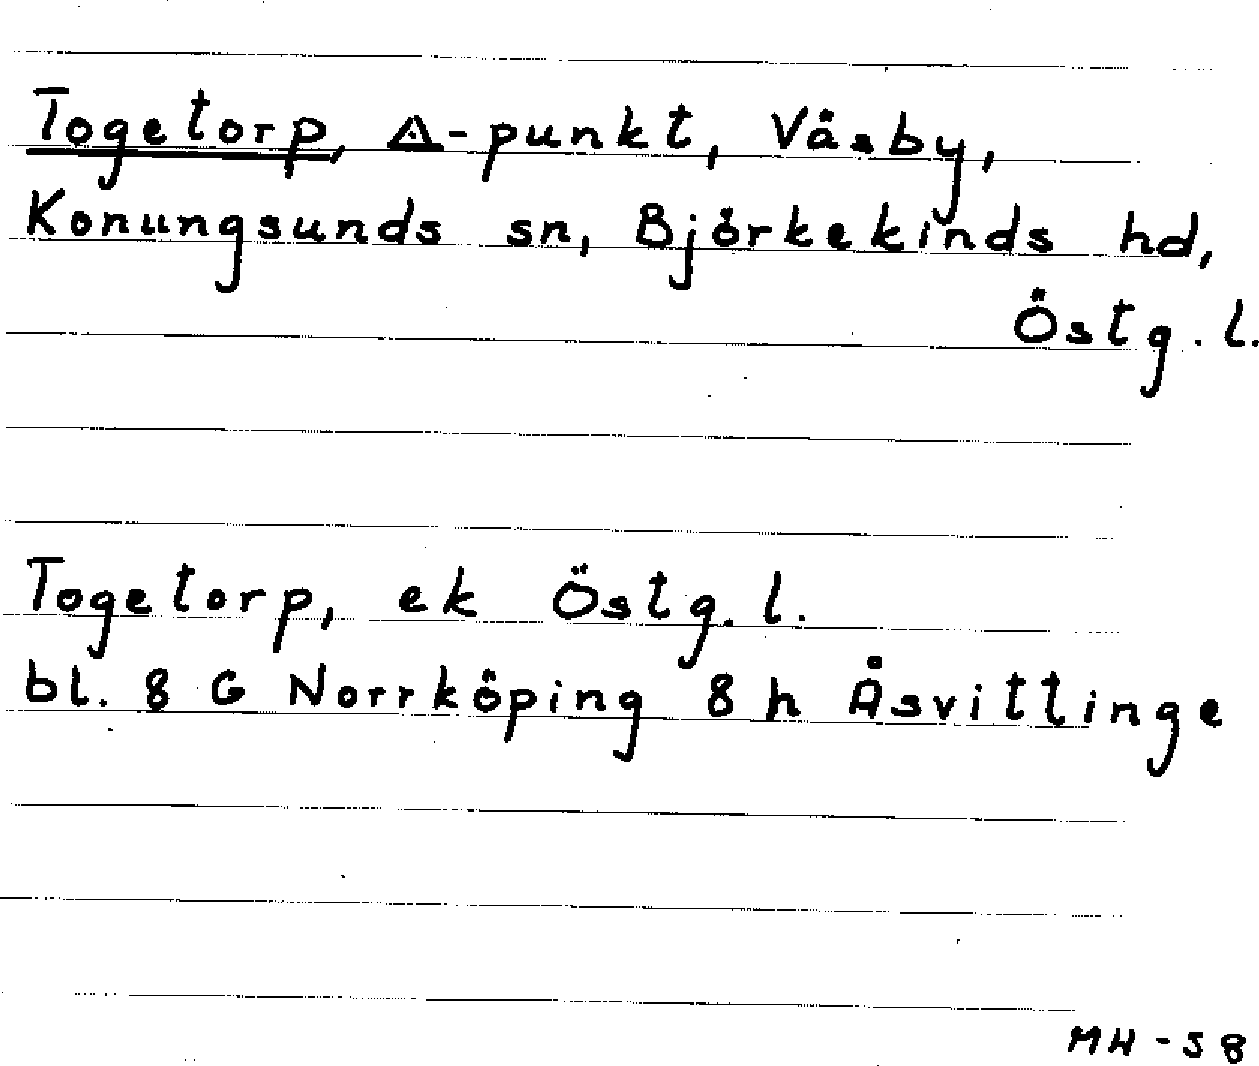 Togetorp, △-punkt, Våsby,
Konungsunds sn, Björkekinds hd,
Östg. l.
Togetorp, ek Östg. l.
bl. 8 G Norrköping 8 h Åsvittinge
MH-58